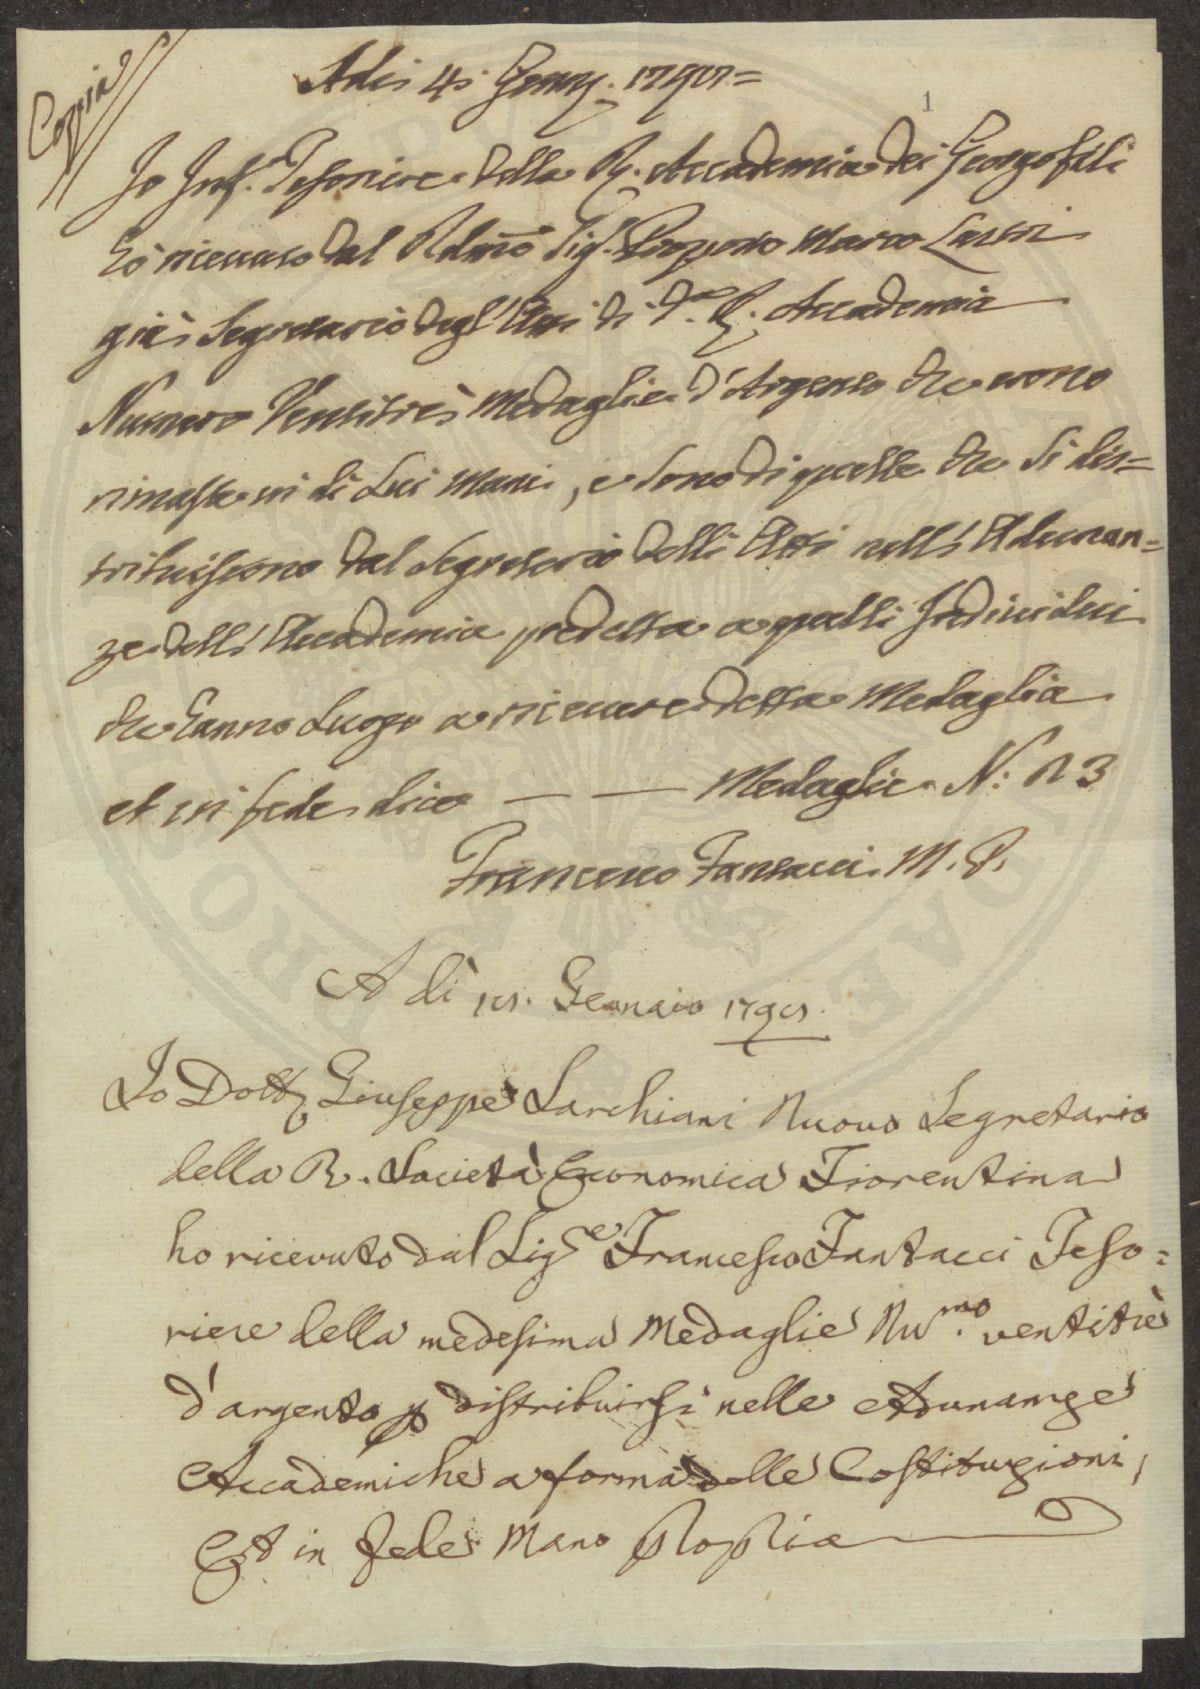 Copia
1
Adì 4: Genn: 179
Io Inf. Tesoriere della R. Accademia dei Georgofili
hò ricevuto dal Rdmo Sig. Proposto Marco Lastri
già Segretario degl'Atti di d.a R. Accademia
Numero Ventitrè Medaglie d'Argento che erono
rimaste in di Lui Mani, e sono di quelle che si dis=
tribuiscono dal Segretario delli Atti nell'Adunan=
ze dell'Accademia predetta a quelli Individui
che hanno Luogo a ricevere detta Medaglia
et in fede dico — — Medaglie N: 23
Francesco Fantacci M. P.
A dì Gennaio 179
Io Dott. Giuseppe Sarchiani Nuovo Segretario
della R. Società Economica Fiorentina
ho ricevuto dal Sig.e Francesco Fantacci Teso=
riere della medesima Medaglie Nu.mo ventitrè
d'argento p distribuirsi nelle Adunanze
Accademiche a forma delle Costituzioni,
Et in fede Mano ppropria